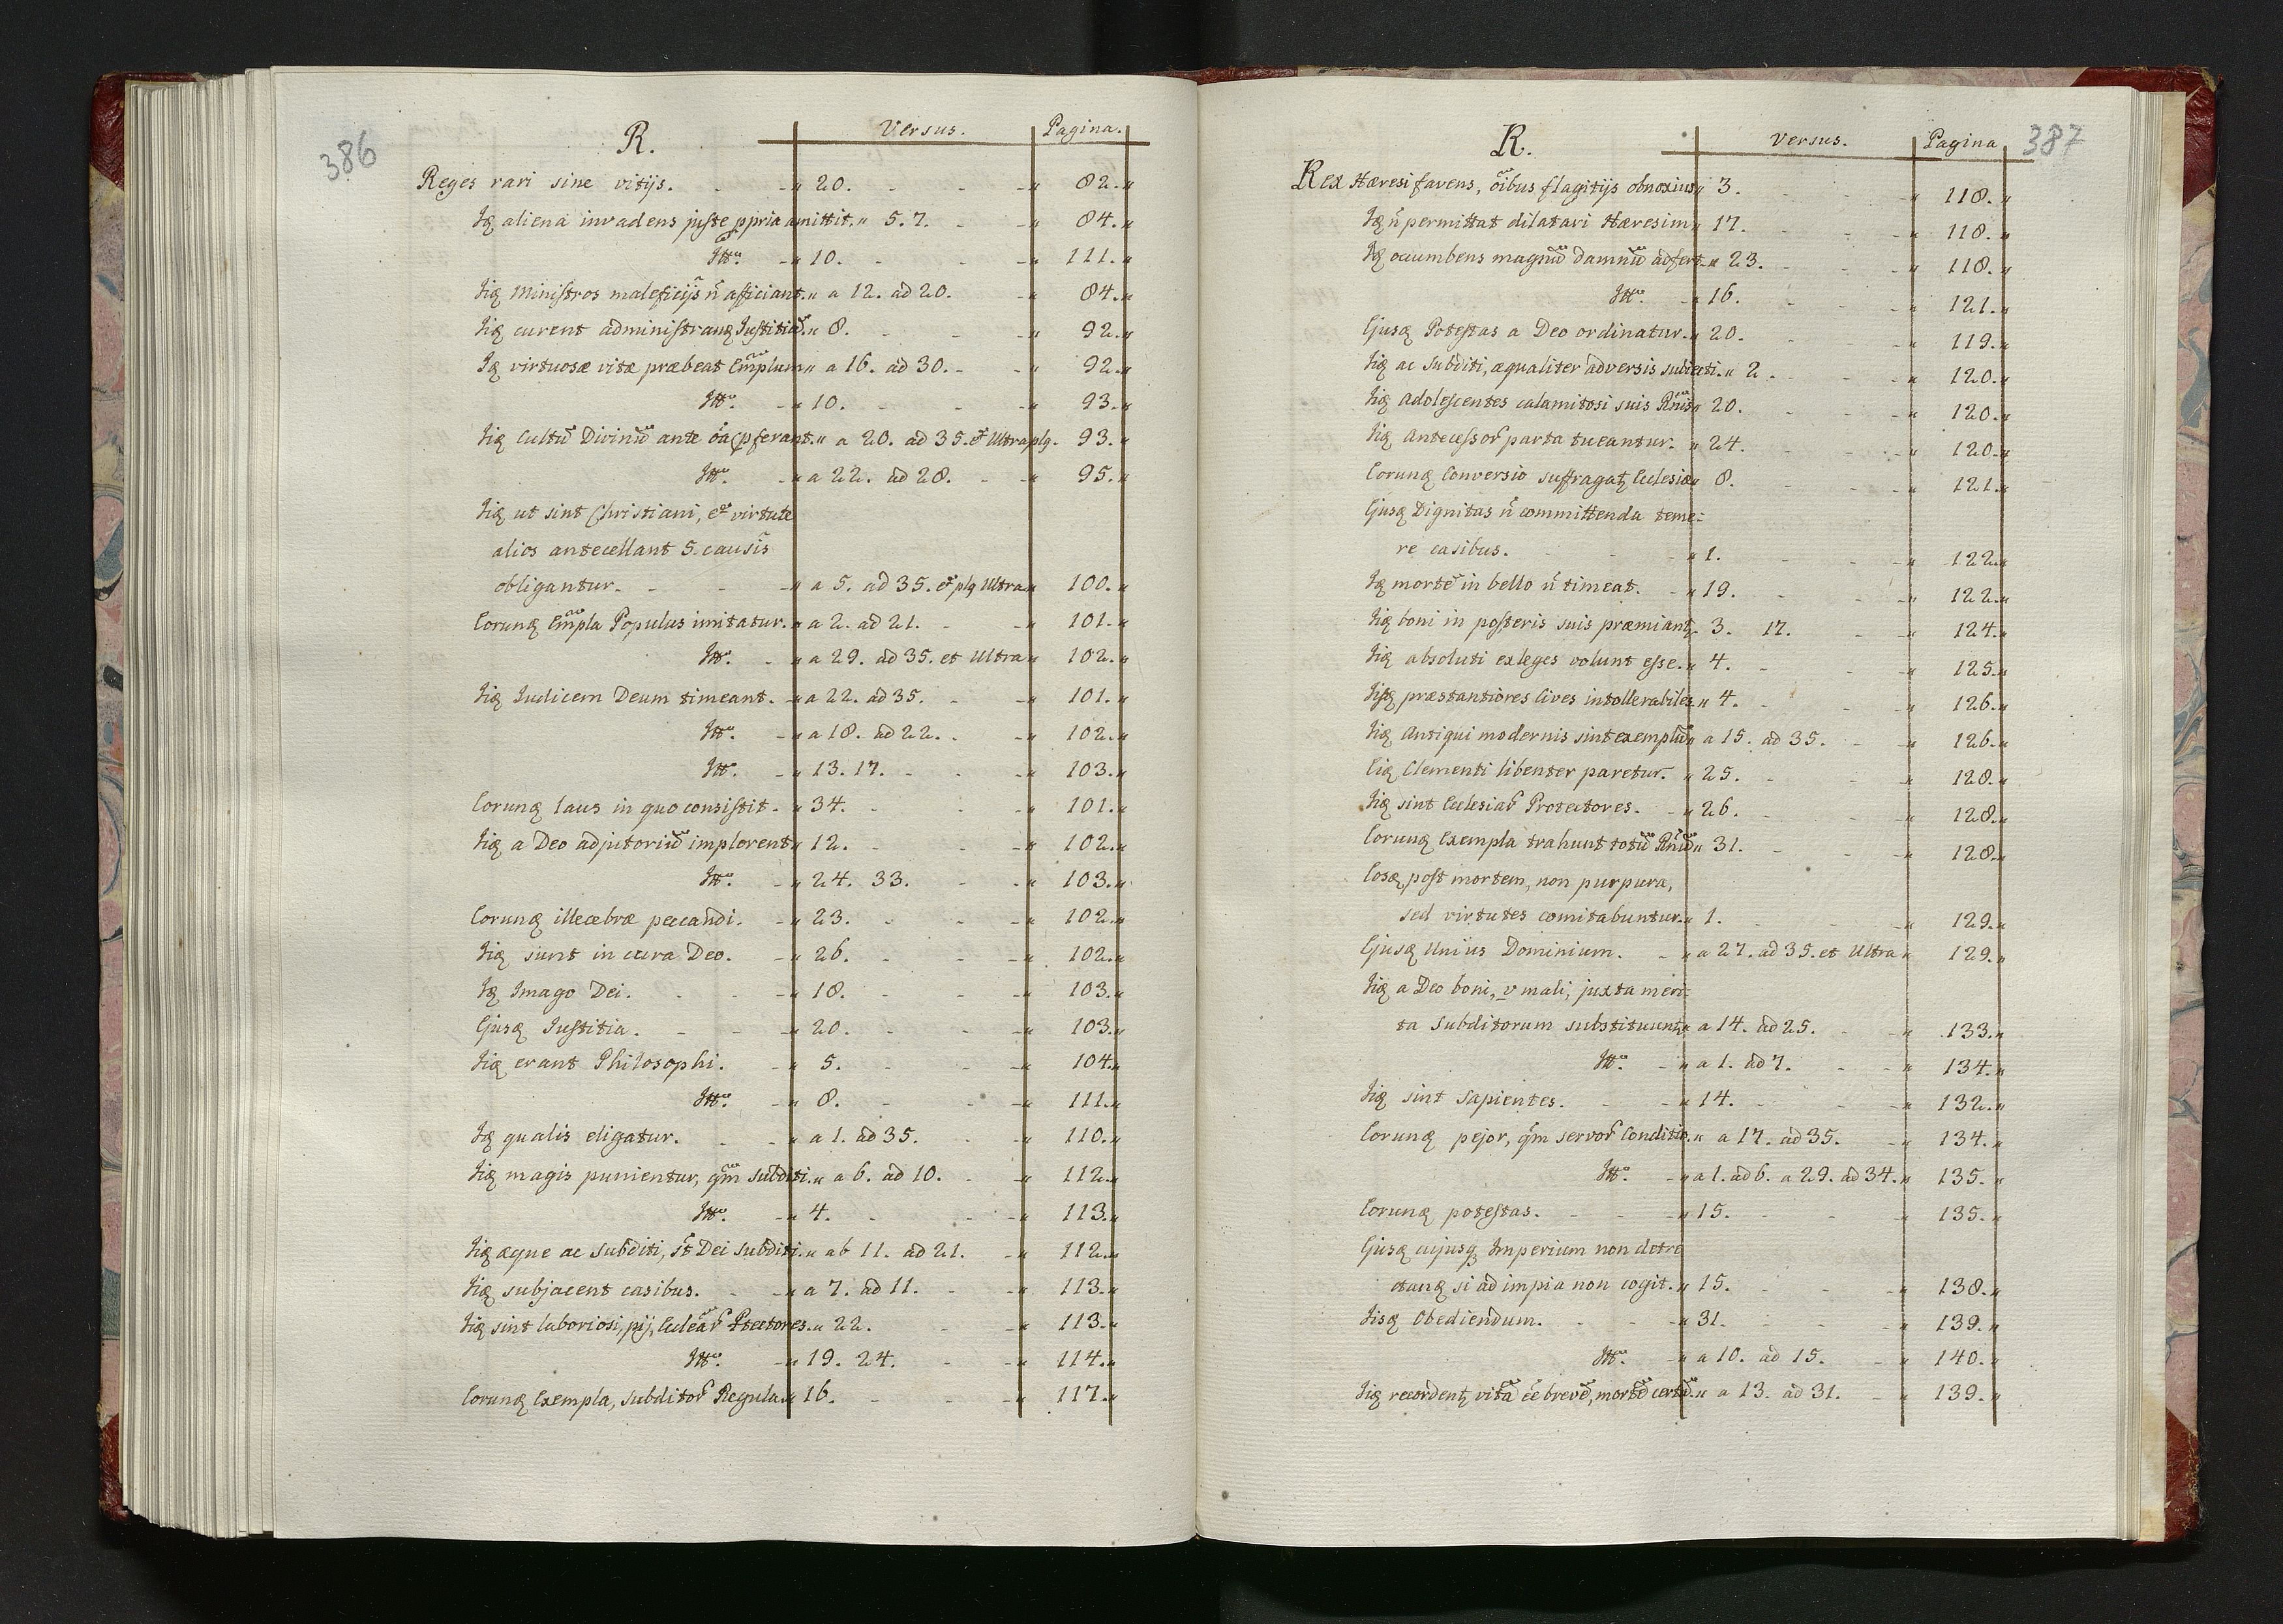 386
R. Versus. Pagina.
Reges rari sine vitijs. 20. 82.
Iq aliena invadens juste ppria amittit. 5. 7. 84.
Itt. 10. 111.
Iiq Ministros maleficijs n̄ afficiant. a 12. ad 20. 84.
Iiq curent administranq Justitiā. 8. 92.
Iq virtuosæ vitæ præbeat Exmplum a 16. ad 30. 92.
Itt. 10. 93.
Iiq Cultū Divinū ante oā pferant. a 20. ad 35. et Ultra plg. 93.
Itt. a 22. ad 28. 95.
Iiq ut sint Christiani, et virtute
alios antecellant 5. causis
obligantur. a 5. ad 35. et plg Ultra 100.
Eorunq Exmpla Populus imitatur. a 2. ad 21. 101.
Itt. a 29. ad 35. et Ultra 102.
Iiq Iudicem Deum timeant. a 22. ad 35. 101.
Itt. a 18. ad 22. 102.
Itt. 13. 17. 103.
Eorunq laus in quo consistit. 34. 101.
Iiq a Deo adjutoriū implorent 12. 102.
Itt. 24. 33. 103.
Eorunq illecebræ peccandi. 23. 102.
Iiq sunt in cura Deo. 26. 102.
Iq Imago Dei. 18. 103.
Ejusq Iustitia. 20. 103.
Iiq erant Philosophi. 5. 104.
Itt. 8. 111.
Iq qualis eligatur. a 1. ad 35. 110.
Iiq magis punientur, qm subditi. a 6. ad 10. 112.
Itt. 4. 113.
Iiq æque ac subditi, st Dei subditi. ab 11. ad 21. 112.
Iiq subjacent casibus. a 7. ad 11. 113.
Iiq sint laboriosi, pij, Ecleār Ptectores. 22. 113.
Itt. 19. 24. 114.
Eorunq Exempla, subditor Regula 16. 117.
R. Versus. Pagina 387
Rex Hæresi favens, oībus flagitijs obnoxius 3. 118.
Iq n̄ permittat dilatari Hæresim 17. 118.
Iq ocumbens magnū damnū adfert. 23. 118.
Itt. 16. 121.
Ejusq Potestas a Deo ordinatur. 20. 119.
Iiq ac subditi, æqualiter adversis subiecti. 2. 120.
Iiq Adolescentes calamitosi suis Rnis 20. 120.
Iiq Antecessor parta tueantur. 24. 120.
Eorunq Conversio suffragatq Ecclesiæ 8. 121.
Ejusq Dignitas n̄ committenda teme:
re casibus. 1. 122.
Iq mortē in bello n̄ timeat. 19. 122.
Iiq boni in posteris suis præmiantq 3. 17. 124.
Iiq absoluti exleges volunt esse. 4. 125.
Iisq præstantiores Cives intollerabiles 4. 126.
Iiq Antiqui modernis sint exemplū a 15. ad 35. 126.
Eiq Clementi libenter paretur. 25. 128.
Iiq sint Ecclesiar Protectores. 26. 128.
Eorunq Exempla trahunt totū Rnū 31. 128.
Eosq post mortem, non purpura,
sed virtutes comitabuntur. 1. 129.
Ejusq Unius Dominium. a 27. ad 35. et Ultra 129.
Iiq a Deo boni, v mali, juxta meri:
ta subditorum substituuntq a 14. ad 25. 133.
Itt. a 1. ad 7. 134.
Iiq sint Sapientes. 14. 132.
Eorunq pejor, qm servor Conditio. a 17. ad 35. 134.
Itt. a 1. ad 6. a 29. ad 34. 135.
Eorunq potestas. 15. 135.
Ejusq cujusq Imperium non detre
ctanq si ad impia non cogit. 15. 138.
Iisq Obediendum. 31. 139.
Itt. a 10. ad 15. 140.
Iiq recordentq vitā ee brevē, mortē certā. a 13. ad 31. 139.